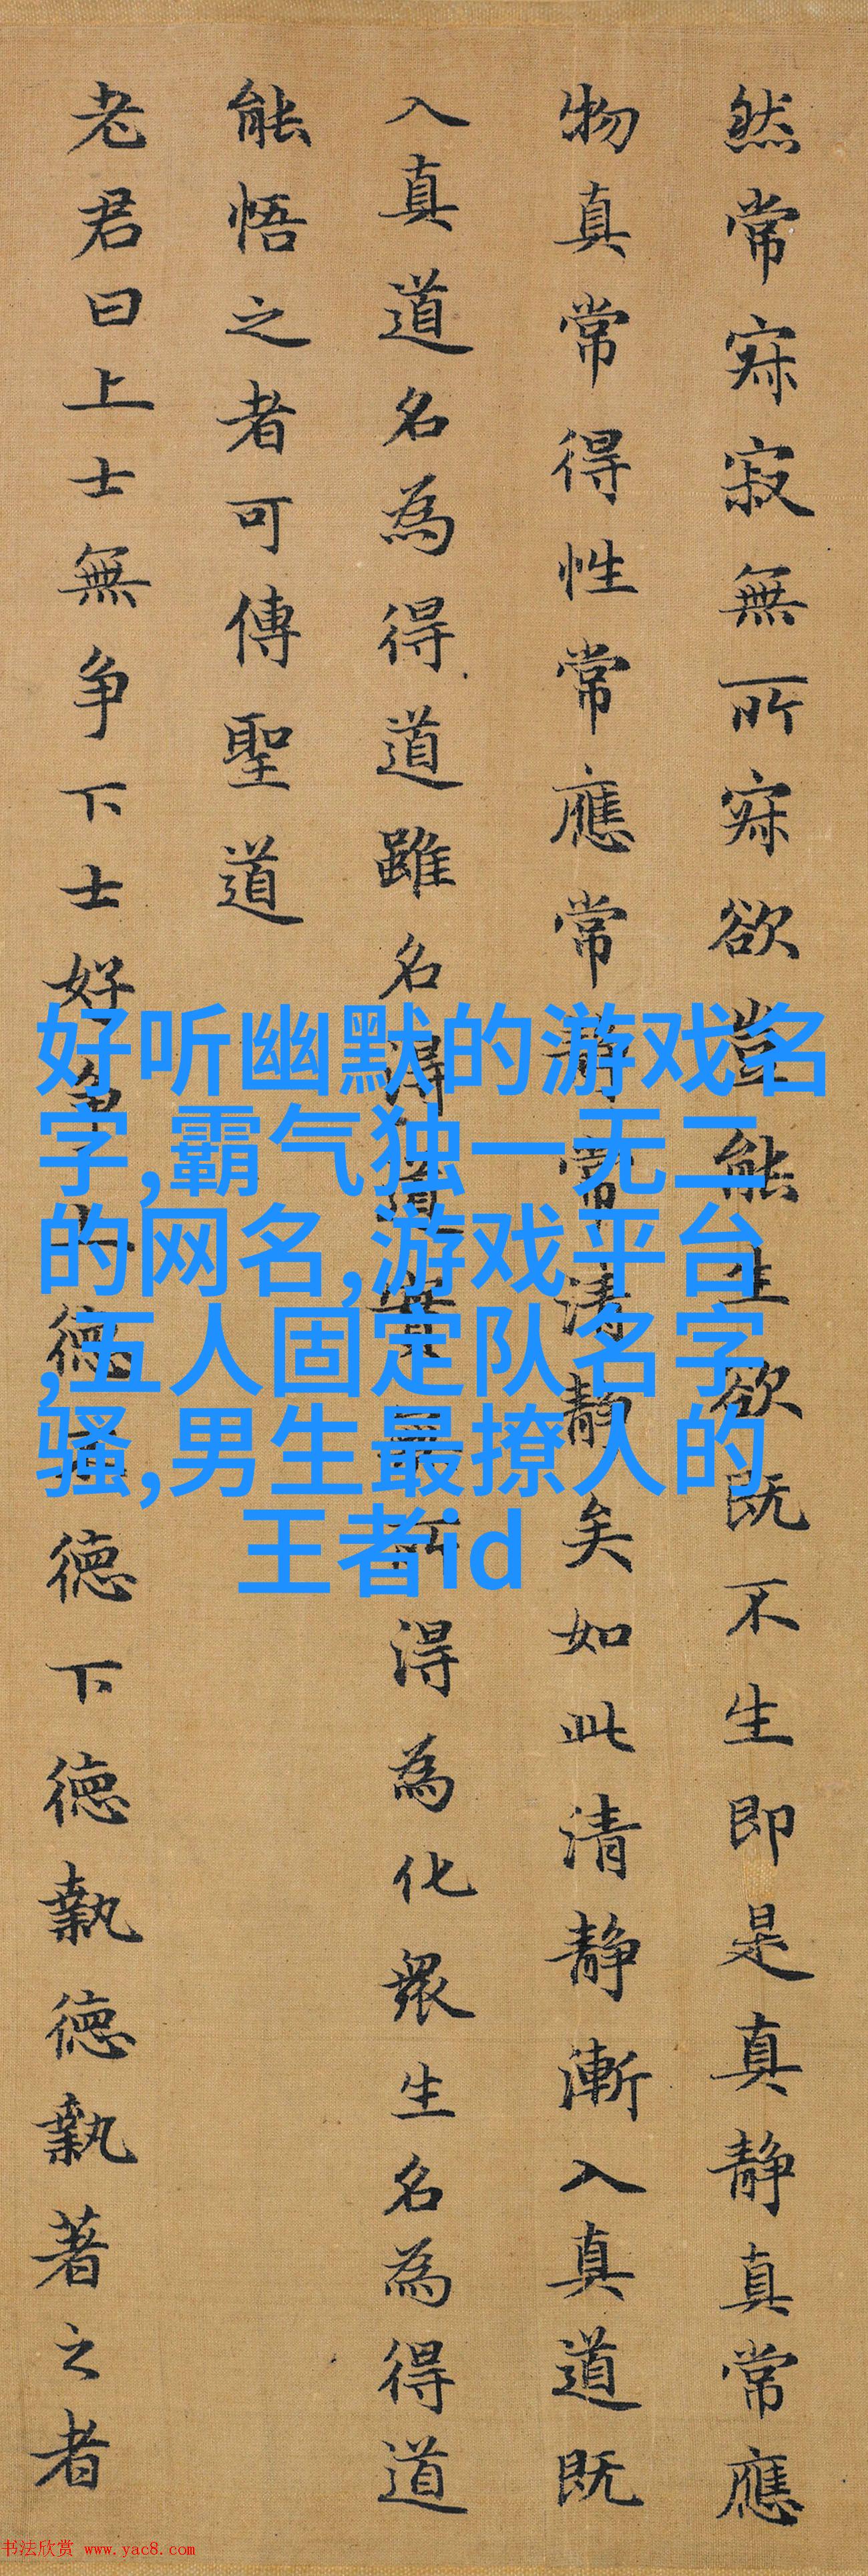 然常寂寂無所寂欲豈能生欲既不生即是真静真常應
物真常得性常應常静常清静矣如此清静漸入真道既
入真道名為得道雖名得道實無所得為化衆生名為得道
能悟之者可傳聖道
老君曰上士無争下士好争上德不德下德執德執著之者
好听幽默的游戏名
字,霸气独一无二
的网名,游戏平台
,五人固定队名字
骚,男生最撩人的
王者id
书法欣赏 www.yac8.com